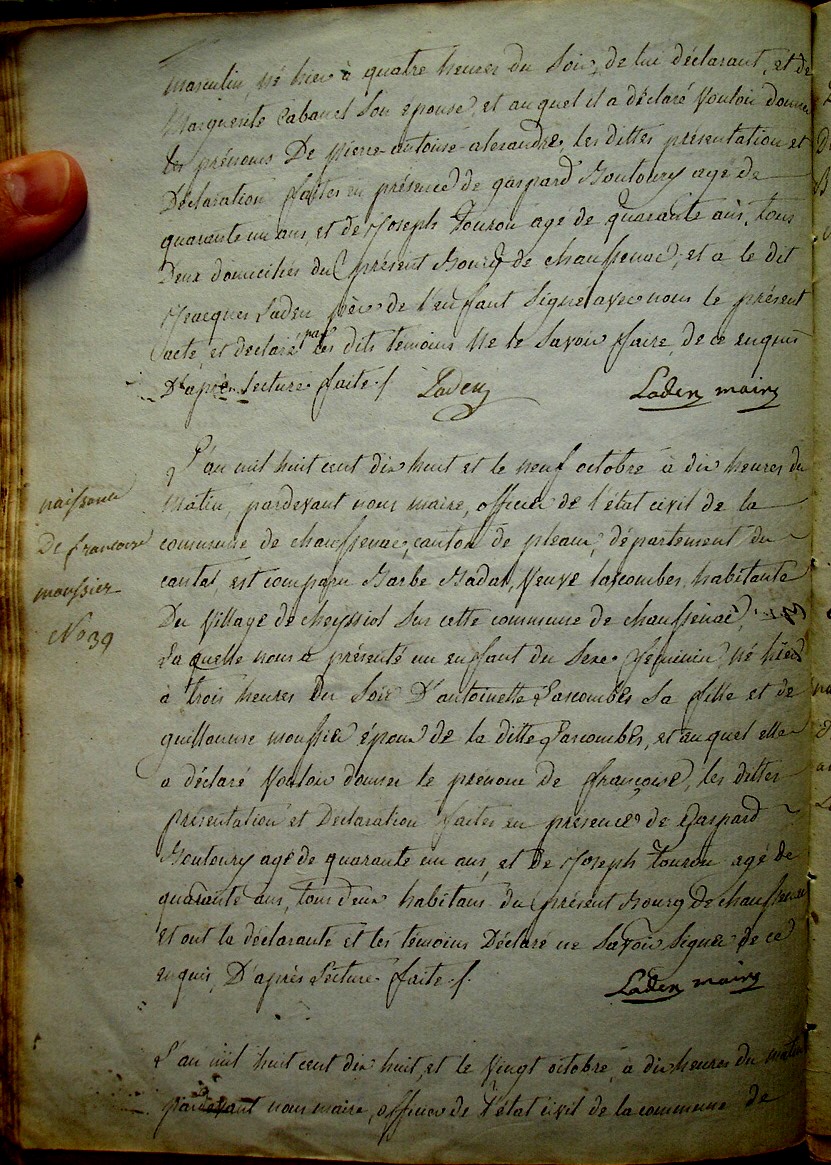 masculin, né hier à quatre heures du soir, de lui déclarant, et de
Marguerite Cabanel son epouse, et auquel il a déclaré vouloir donner
les prénoms De pierre-antoine-alexandre, les dittes présentation et
Déclaration faites en présence de gaspard Boutoury agé de
quarante un ans, et de Joseph Tourou agé de quarante ans, tous
Deux domiciliés du présent Bourg de chaussenac, et a le dit
Jeacques Laden père de l'enfant signé avec nous le présent
acte, et declaré par les dits temoins ne le savoir faire, de ce enquis
D'après Lecture faite./. Laden Laden maire
L'an mil huit cent dix huit et le neuf octobre à dix heures du
matin, pardevant nous maire, officier de l'état civil de la
naissance
commune de chaussenac, canton de pleaux, département du
De francoise
cantal, est comparu Barbe Badal, veuve lascombes, habitante
moussier
Du village de cheyssiol sur cette commune de chaussenac,
No 39
Laquelle nous a présenté un enfant du sexe feminin, né hier
a trois heures du soir D'antoinette Lascombes sa fille et de
guillaume moussier époux de la ditte Lascombes, et auquel elle
a déclaré vouloir donner le prenom de francoise, les dittes
présentation et Declaration faites en présence de Gaspard
Boutoury agé de quarante un ans, et de Joseph Tourou agé de
quarante ans, tous deux habitans du présent Bourg de chaussenac
et ont la déclarante et les temoins Déclaré ne savoir signer de ce
enquis, D'après Lecture faite./. Laden maire
L'an mil huit cent dix huit, et le vingt octobre, à dix heures du matin
pardevant nous maire, officier de l'état civil de la commune de